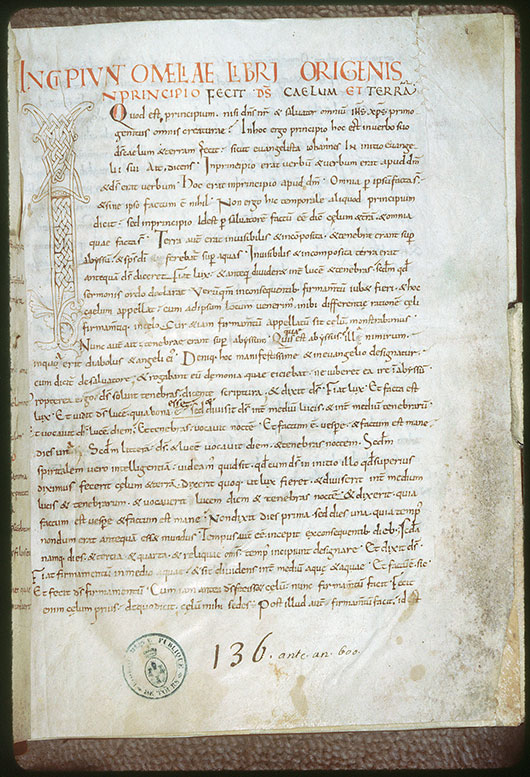 INCPIUNT OMELIAE LIBRI ORIGENIS
IN PRINCIPIO FECIT DS CAELUM ET TERRA
Quod est principium nisi dns nr & salvator omniu ihs xps primo
genitus omnis creaturae In hoc ergo principio hoc est in verbo suo
ds caelum & terram fecit sicut evangelista iohannes in initio evange
lii sui Ait dicens In principio erat verbu & verbum erat apud dm
& ds erat verbum Hoc erat in principio apud dm Omnia p ipsu facta s
& sine ipso factum e nihil Non ergo hic temporale aliquod principium
dicit sed in principio Id est p salvatore factu ee dic celum & terra & omnia
quae facta s Terra aut erat invisibilis & incomposita & tenebre erant sup
abyssu & sps di ferebat sup aquas Invisibilis & incomposita terra erat
antequa ds diceret Fiat lux & anteq divider& int luce & tenebras sedm qd
sermonis ordo declarat Veru qm in consequentib firmamtu iub& fieri & hoc
caelum appellat cum ad ipsum locum venerim inibi differentie ratione celi
firmamtiq in celo Cur etiam firmamtu appellatu sit celu monstrabimus
Nunc aut ait tenebrae erant sup abyssum Quis est abyssus illa nimirum
in qua erit diabolus & angeli ei Deniq hoc manifestissime & in evangelio designatur
cum dicit de salvatore & rogabant eu demonia quae eiciebat ne iuberet ea ire in abyssu
ropterea ergo ds solvit tenebras dicente scriptura & dixit ds Fiat lux Et facta est
lux Et vidit ds luce quia bona esset & divisit ds int mediu lucis & int mediu tenebraru
t vocavit ds luce die Et tenebras vocavit nocte Et factum e vespe & factum est mane
dies un Sedm littera ds & luce vocavit diem & tenebras noctem Sedm
spiritalem vero intelligentia videam quid sit qd cum ds in initio illo qd superius
diximus fecerit celum & terra dixerit quoq ut lux fieret & diviserit int medium
lucis & tenebrarum & vocaverit lucem diem & tenebras nocte & dixerit quia
factum est vespe & factum est mane Non dixit dies prima sed dies una quia temp
nondum erat antequa ess& mundus Tempus aut ee incepit ex consequentib dieb Scda
namq dies & tertia & quarta & reliquae oms temp incipiunt designare Et dixit ds
Fiat firmamentu in medio aquae & sit dividens int mediu aque & aquae Et factu e sic
Et fecit ds firmamentu Cum iam antea ds fecisse celu nunc firmamtu facit Fecit
enim celum prius de quo dicit celu mihi sedes Post illud aut firmamtu facit id est
136. ante an. 600.
BIBLIOTHEQUE PUBLIQUE
DE TOURS